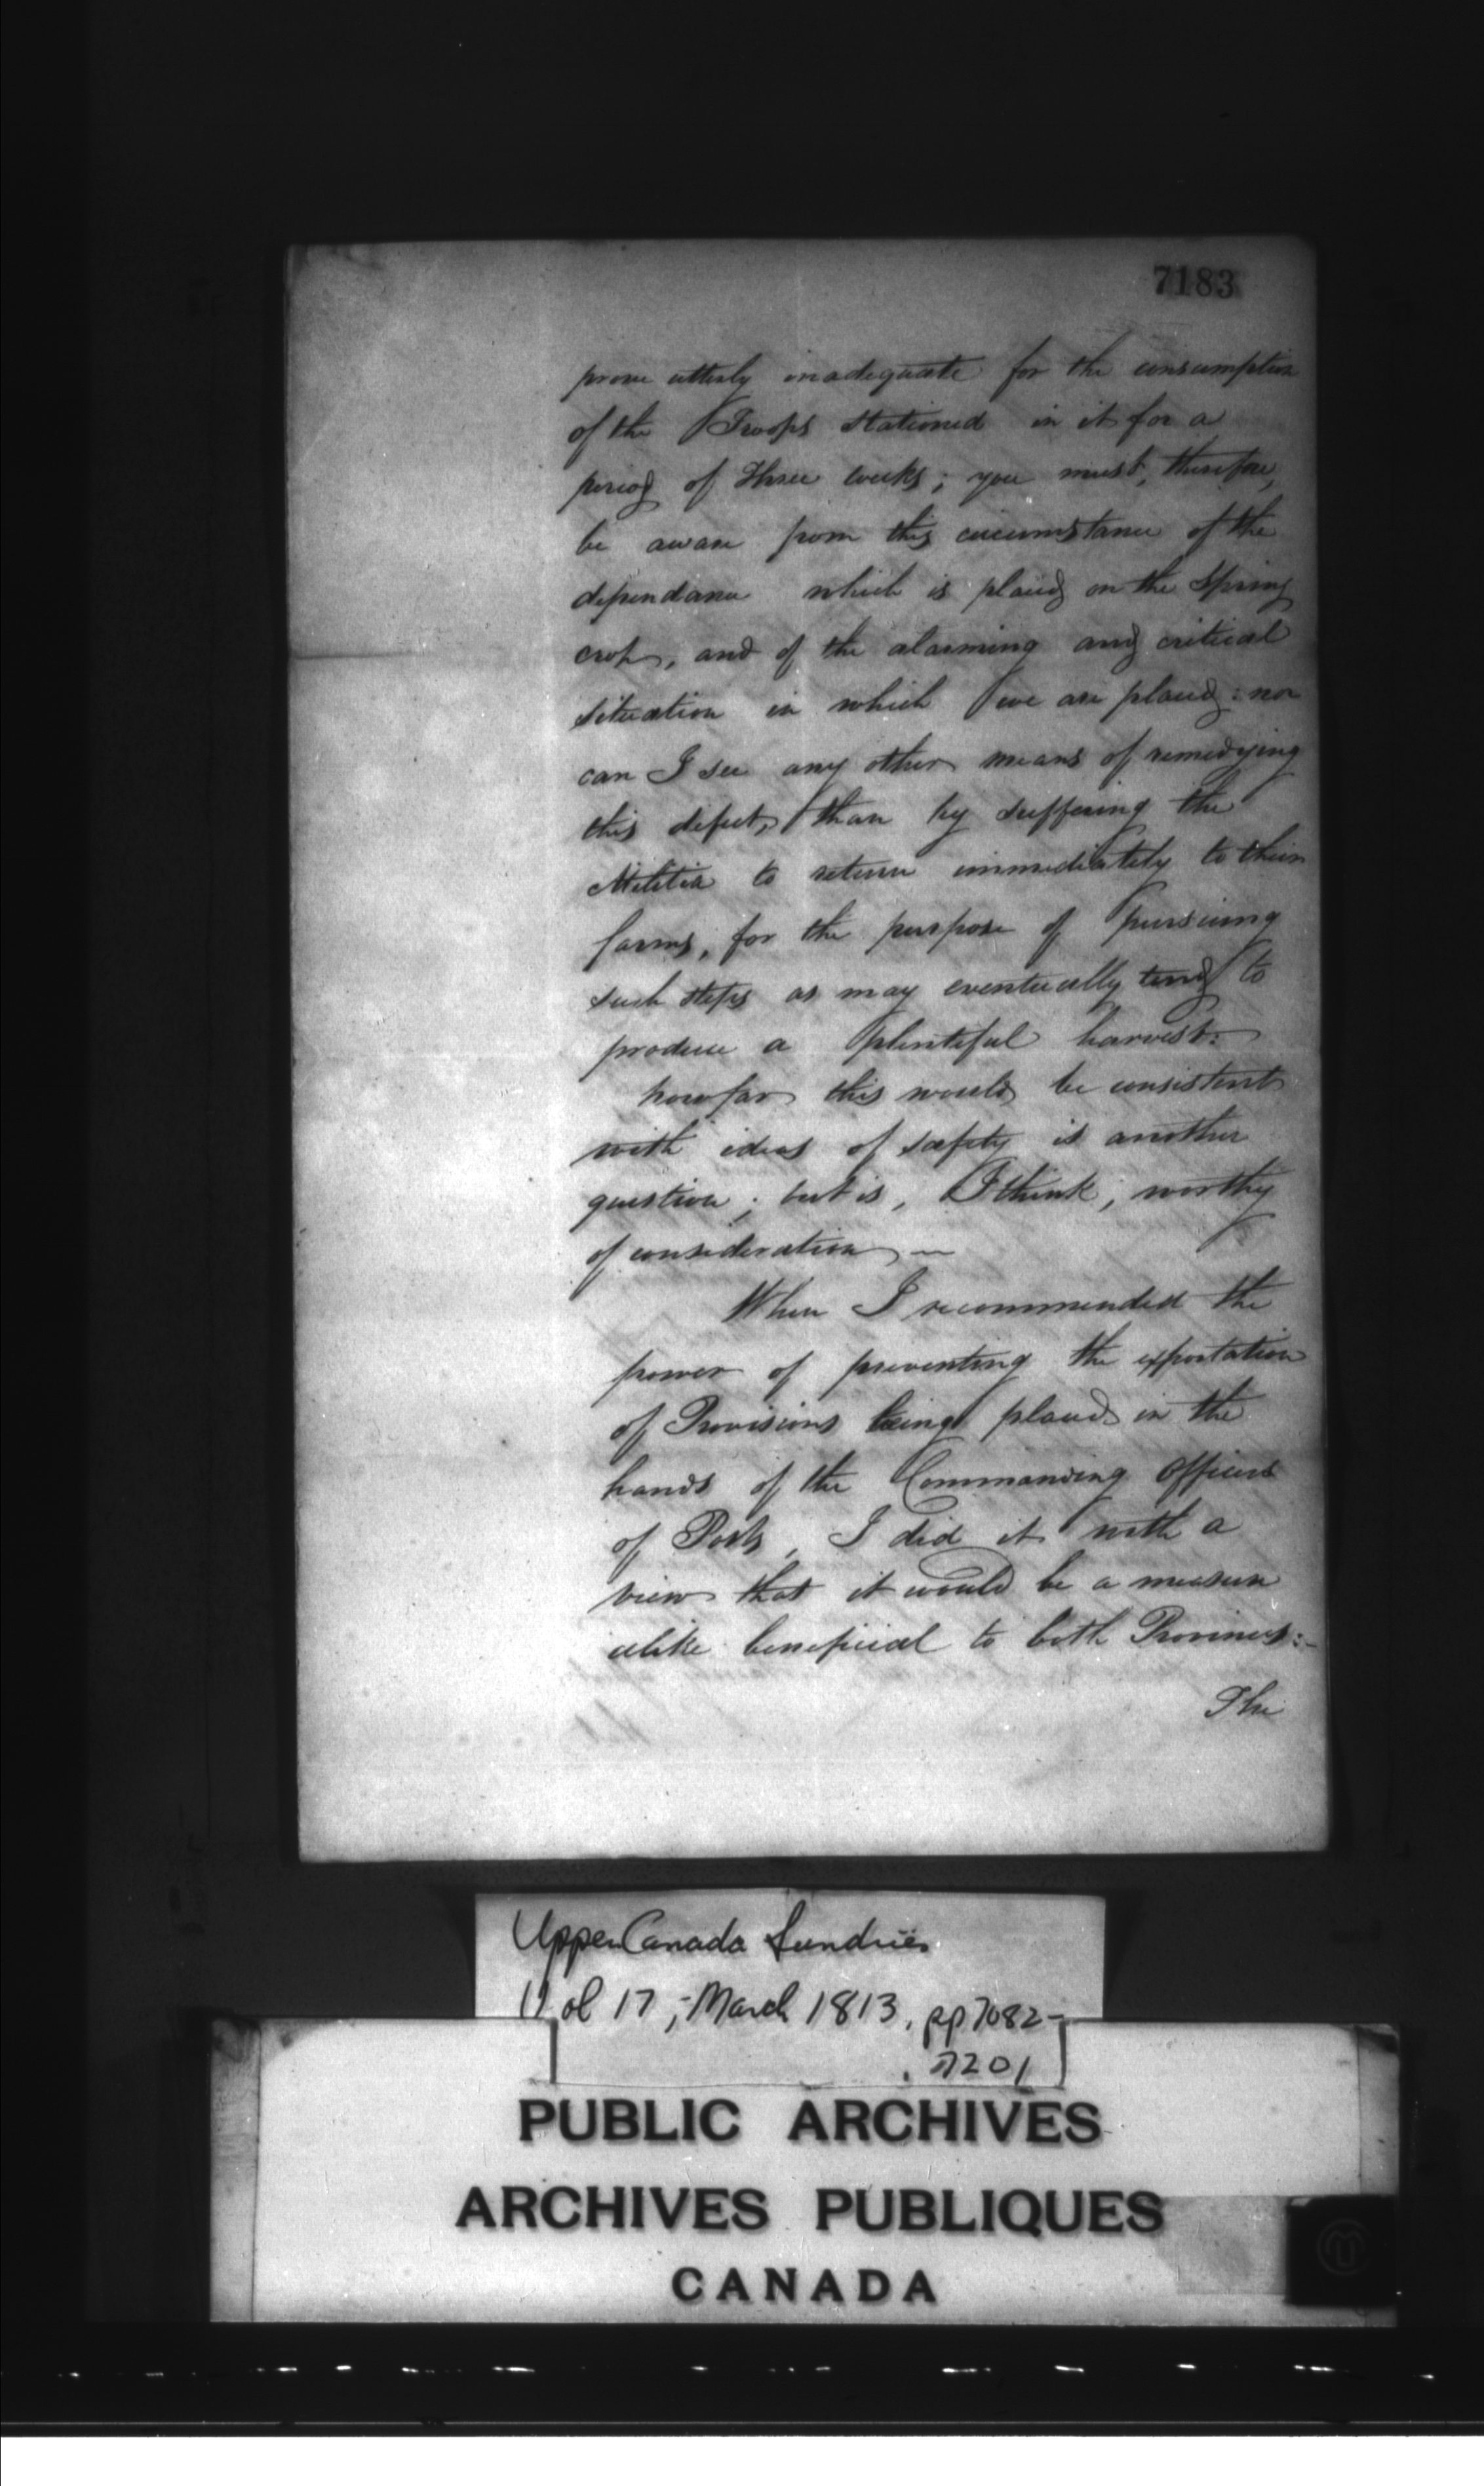 7183
prove utterly inadequate for the consumption
of the Troops stationed in it for a
period of Three weeks; you must, therefore,
be aware from this circumstance of the
dependance which is placed on the Spring
crop, and of the alarming and critical
situation in which we are placed: nor
can I see any other means of remedying
this defect, than by suffering the
Militia to return immediately to their
farms, for the purpose of pursuing
such steps as may eventually tend to
produce a plentiful harvest:
how far this would be consistent
with ideas of safety is another
question; but is, I think, worthy
of consideration —
When I recommended the
power of preventing the exportation
of Provisions being placed in the
hands of the Commanding Officers
of Posts, I did it with a
view that it would be a measure
alike beneficial to both Provinces:-
The
Upper Canada Sundries
Vol 17, - March 1813, pp 7082-
7201
PUBLIC ARCHIVES
ARCHIVES PUBLIQUES
CANADA